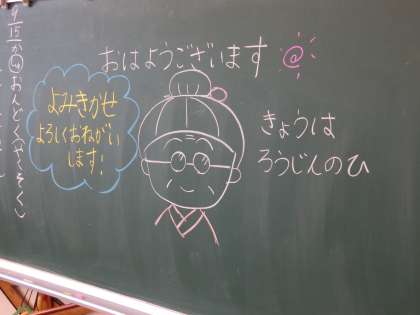 おはようございます
よみきかせ
よろしくおねがい
します!
きょうは
ろうじんのひ
9/15か④おんどく(くじらぐも)